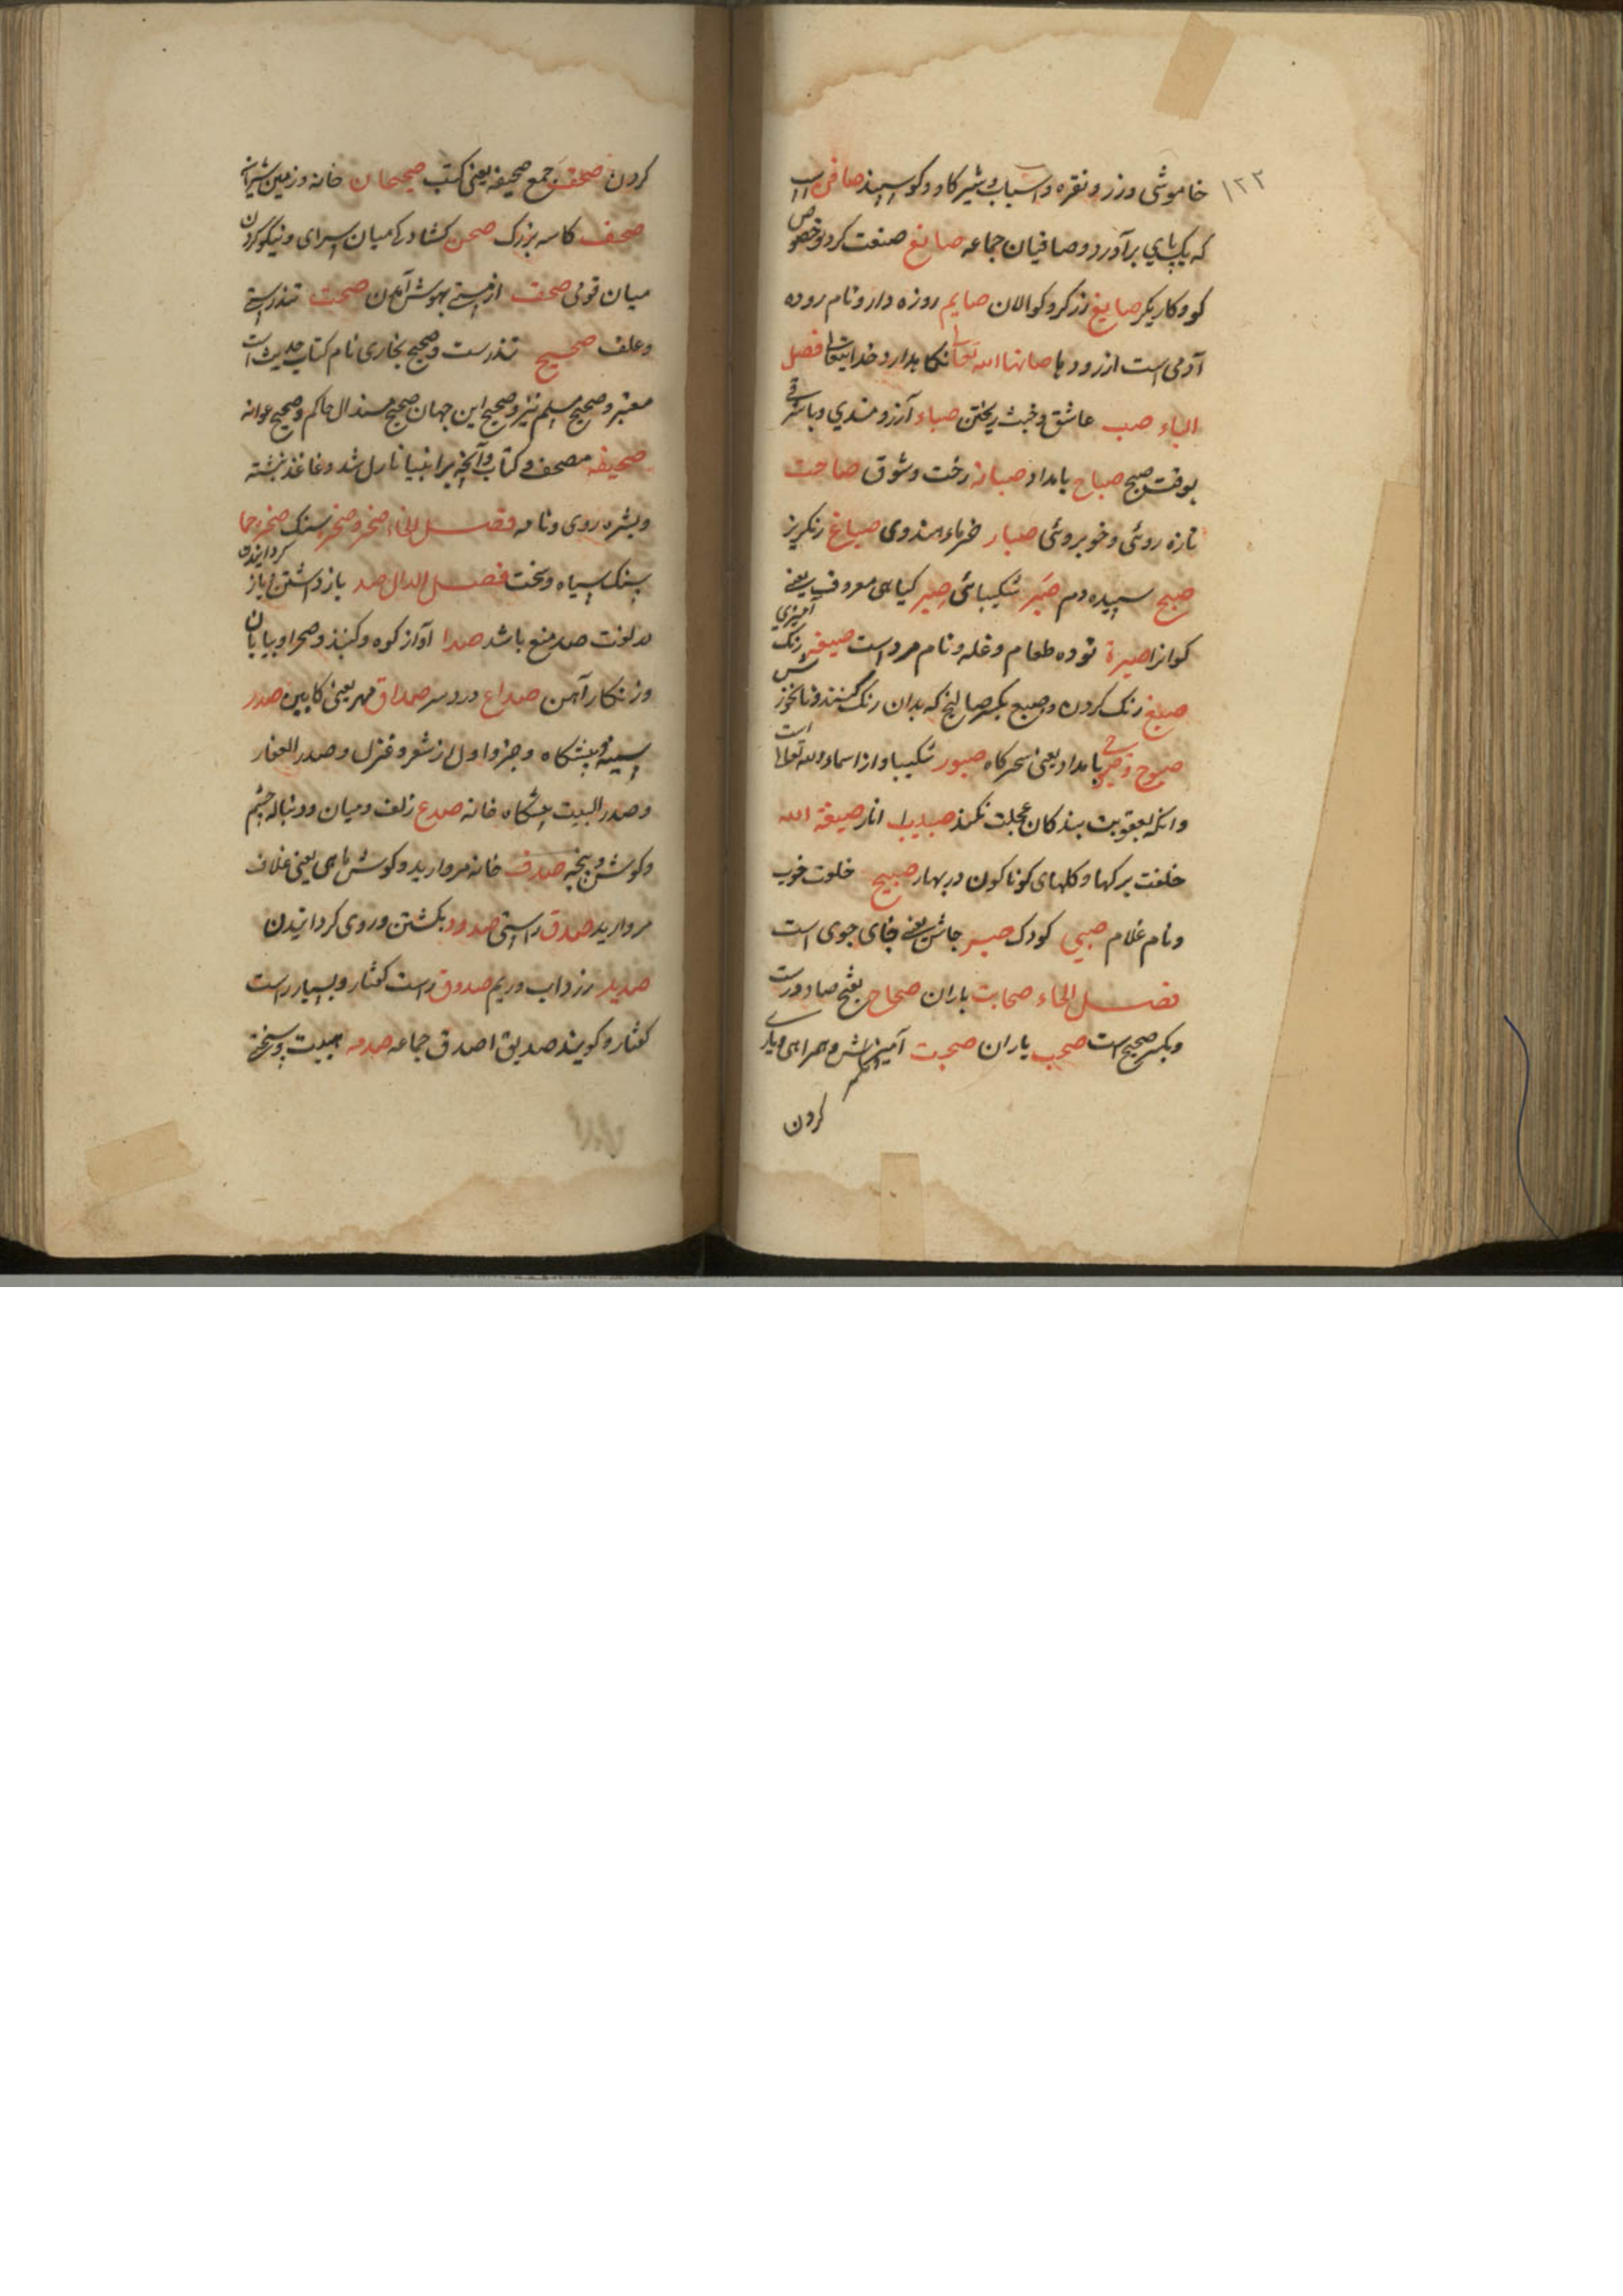 ۱۲۲
خاموشی و زر و نقره و اسباب و شیر کاو و کوسپند صافن اسب
که یک پای برآورد و صافیان جماعه صانع صنعت کرد و خصوص
کو و کاریکر صایغ زرکر و کوالان صایم روزه دار و نام روده
آدمی است از رودها صانها الله تعالی نکاهدارد خدایتعالی فصل
الباء صب عاشق و ریختن صباء آرزومندی و باد شرقی
بوقت صبح صباح بامداد صبابه رخت و شوق صباحت
تازه روئی و خوبروئی صبار خرماء هندوی صباغ رنکریز
صبح سپیده دم صبر شکیبائی صبر کیاهی معروف یعنی
کوانرا صبرة توده طعام و غله و نام مرد است صبغه رنک آمیزی
صبغ رنک کردن و صبغ بکسر صا انچه که بدان رنک کنند و نانخورش
صبوح بامداد یعنی سحرکاه صبور شکیبا و از اسماء الله تعالی است
و انکه بعقوبت بندکان عجلت نکند صبیب انار صبغة الله
خلقت برکها و کلهای کوناکون در بهار صبیح خلوت خوب
و نام غلام صبی کودک جاش یعنی جای جوی است
فصل الحاء صحابت یاران صحاح بفتح صاد درست
و بکسر صحیح است صحب یاران صحبت آمیزش و همراهی و یاری
کردن
کردن صحف جمع صحیفه یعنی کتب صحیحان خانه و زمین
صحف کاسه بزرک صحن کشادکی میان سرای و نیکو کردن
میان قومی از مستی بهوش آمدن صحت تندرستی
و علف صحیح تندرست و صحیح بخاری نام کتاب حدیث است
معتبر و صحیح مسلم نیز و صحیح ابن جهان صحیح مسند ال حاکم و صحیح عوانه
صحیفه مصحف و کتاب و آنچه بر انبیا نازل شد و غاغذ نبشته
و بشره روی و نامه فصل الخاء صخر و صخر سنک صخره خا
سنک سیاه و سخت فصل الدال صد بازداشتن و باز کردانیدن
در لغت صد منع باشد صدا آواز کوه و کنبذ و صحرا و بیابان
و زنکار آهن صداع درد سر صداق مهر یعنی کابین صدر
سینه و پیشکاه و جزو اول از شعر و غزل و صدر الغفار
و صدر البیت پیشکاه خانه صدغ زلف و میان و دنباله چشم
و کوش و پیچه صدف خانه مروارید و کوش ماهی یعنی غلاف
مروارید صدق راستی صدود بکشتن و روی کردانیدن
صدید زرداب و ریم صدوق راست کفتار و بسیار راست
کفتار و کویند صدیق اصدق جماعه صدمه هیبت و سختی